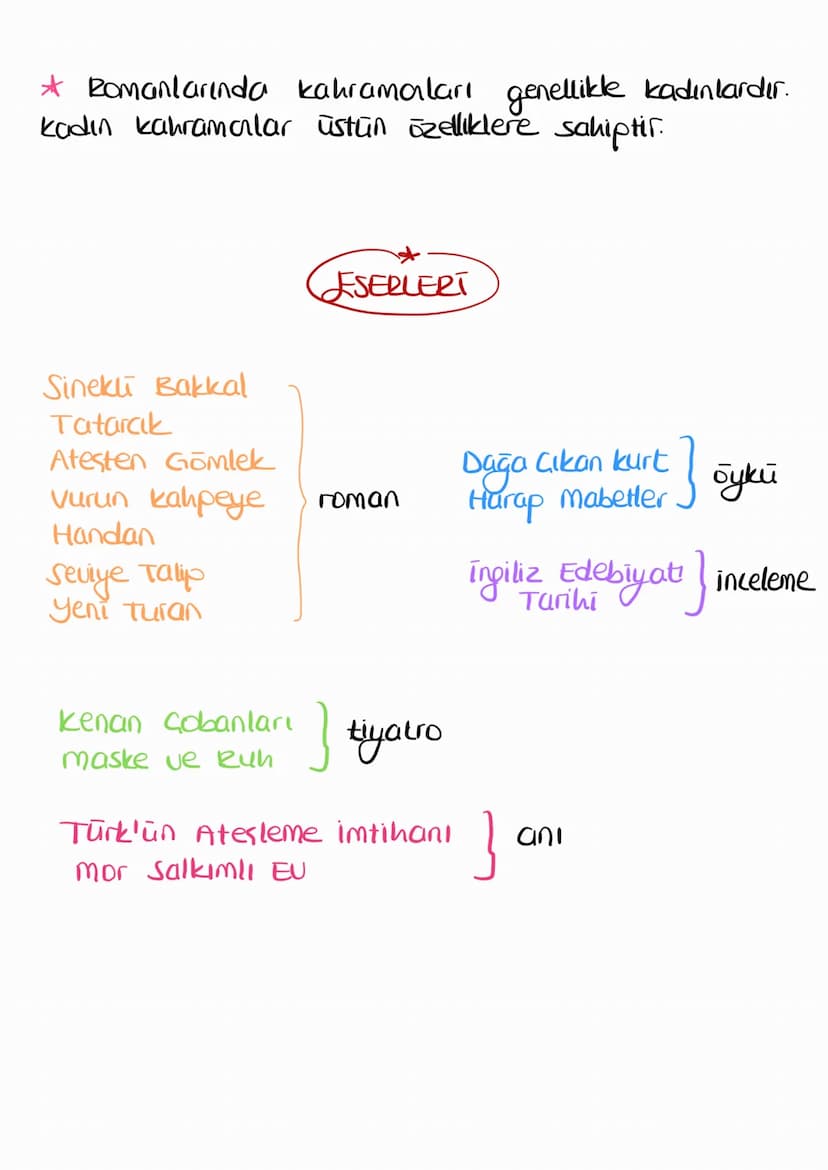 * Romanlarında kahramanları genellikle kadınlardır.
Kadın kahramanlar üstün özelliklere sahiptir.
* ESERLERİ
Sinekli Bakkal
Tatarcık
Ateşten Gömlek
Vurun Kahpeye
Handan
Seviye Talip
Yeni Turan
roman
Dağa Çıkan Kurt
Harap Mabetler
öykü
İngiliz Edebiyatı
Tarihi
inceleme
Kenan Çobanları
Maske ve Ruh
tiyatro
Türk'ün Ateşleme İmtihanı
Mor Salkımlı Ev
anı